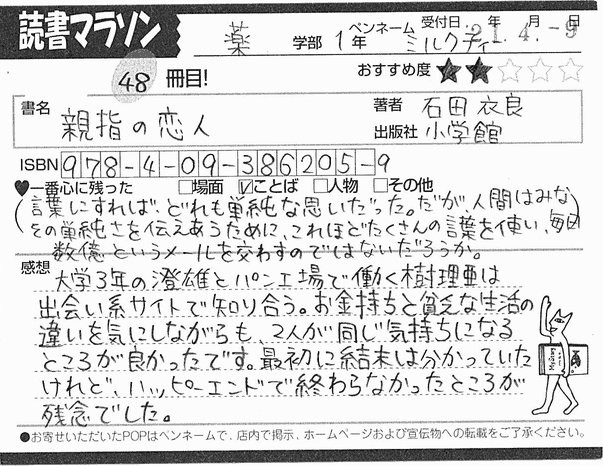 読書マラソン
薬 学部 1年 ペンネーム ミルクティー 受付日 21年 4.月 -9日
48 冊目! おすすめ度 ★★☆☆☆
書名 親指の恋人 著者 石田衣良
出版社 小学館
ISBN 978-4-09-386205-9
♥一番心に残った □場面 ☑ことば □人物 □その他
(言葉にすれば、どれも単純な思いだった。だが、人間はみな
その単純さを伝えあうために、これほどたくさんの言葉を使い、毎日
数億というメールを交わすのではないだろうか。)
感想 大学3年の澄雄とパン工場で働く樹理亜は
出会い系サイトで知り合う。お金持ちと貧乏な生活の
違いを気にしながらも、2人が同じ気持ちになる
ところが良かったです。最初に結末は分かっていた
けれど、ハッピーエンドで終わらなかったところが
残念でした。
●お寄せいただいたPOPはペンネームで、店内で掲示、ホームページおよび宣伝物への転載をご了承ください。